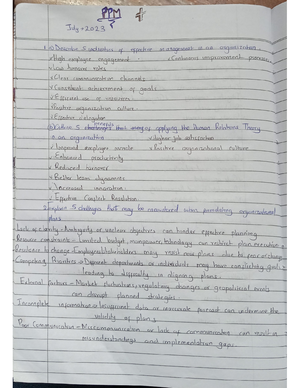 PPM
July - 2023
1 a) Describe 10 indicators of effective management in an organization.
✓ High employee engagement ✓ Continuous improvement processes
✓ Low turnover rates
✓ Clear communication channels
✓ Consistent achievement of goals
✓ Efficient use of resources
✓ Positive organization culture
✓ Effective delegation
b) Outline 5 benefits that emerge applying the Human Relations Theory in an organization
✓ Higher job satisfaction
✓ Improved employee morale ✓ Positive organizational culture
- Enhanced productivity
- Reduced turnover
- Better team dynamics
- Increased innovation
- Effective Conflict Resolution
2 Explain 5 challenges that may be encountered when formulating organizational plans
Lack of clarity - Ambiguity or unclear objectives can hinder effective planning
Resource constraints - Limited budget, manpower, technology can restrict plan execution
Resistance to change - Employees/stakeholders may resist new plans due to fear of change
Competing Priorities - Different departments or individuals may have conflicting goals leading to difficulty in aligning plans.
External factors - Market fluctuations, regulatory changes, or geopolitical events can disrupt planned strategies
Incomplete information - Insufficient data or inaccurate forecast can undermine the validity of plans
Poor Communication - Miscommunication or lack of communication can result in misunderstandings and implementation gaps